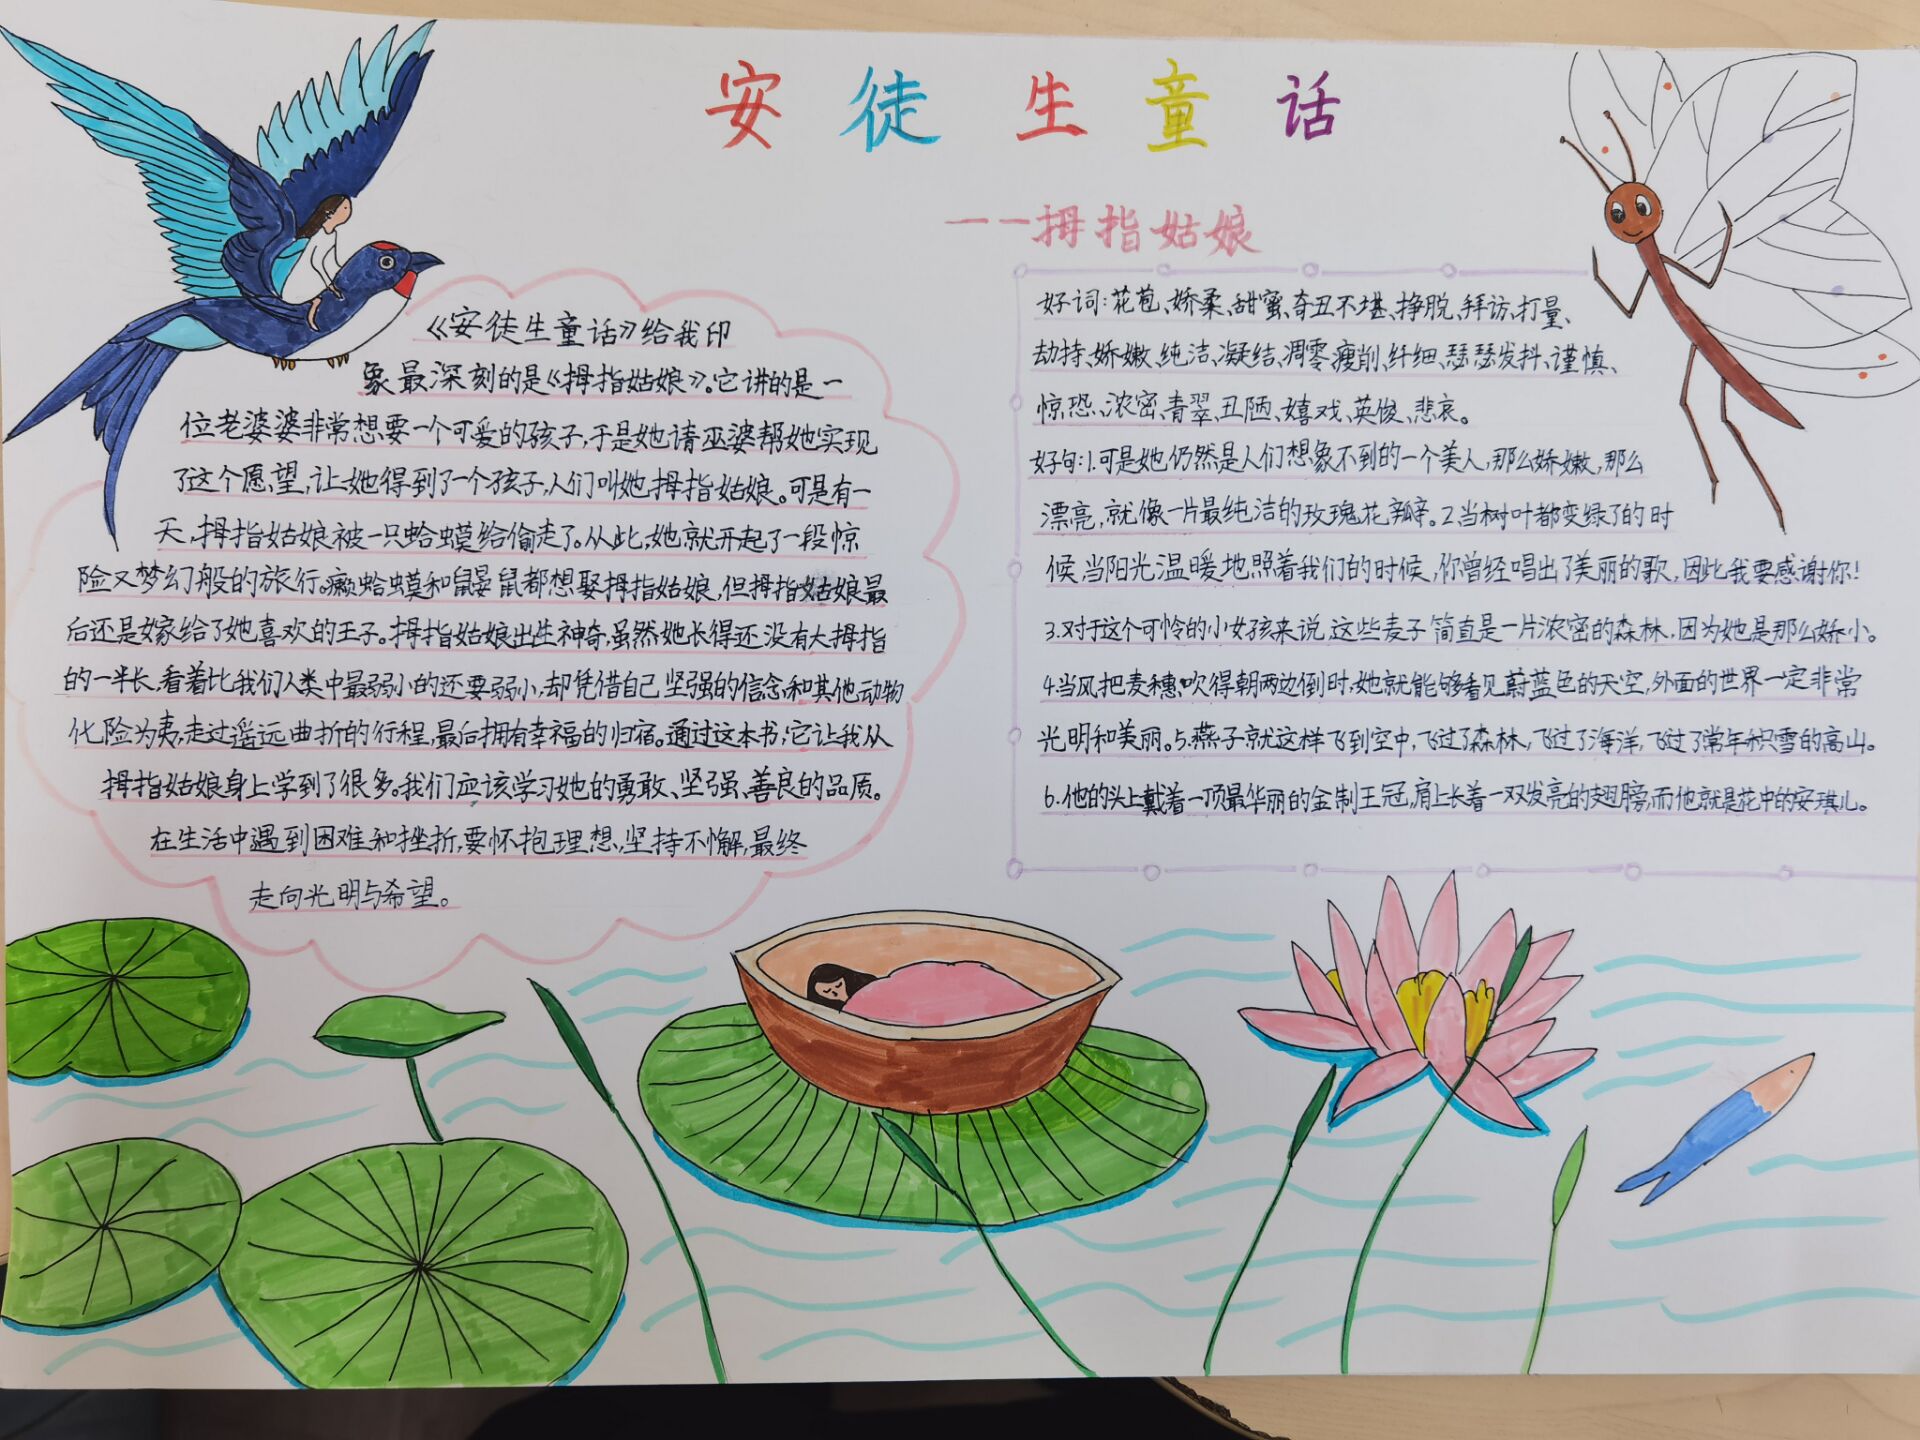 安徒生童话
——拇指姑娘
《安徒生童话》给我印
象最深刻的是《拇指姑娘》。它讲的是一
位老婆婆非常想要一个可爱的孩子,于是她请巫婆帮她实现
了这个愿望,让她得到了一个孩子,人们叫她拇指姑娘。可是有一
天,拇指姑娘被一只蛤蟆给偷走了。从此,她就开起了一段惊
险又梦幻般的旅行。癞蛤蟆和鼠鼹鼠都想娶拇指姑娘,但拇指姑娘最
后还是嫁给了她喜欢的王子。拇指姑娘出生神奇,虽然她长得还没有大拇指
的一半长,看着比我们人类中最弱小的还要弱小,却凭借自己坚强的信念和其他动物
化险为夷,走过遥远曲折的行程,最后拥有幸福的归宿。通过这本书,它让我从
拇指姑娘身上学到了很多。我们应该学习她的勇敢、坚强、善良的品质。
在生活中遇到困难和挫折,要怀抱理想,坚持不懈,最终
走向光明与希望。
好词:花苞、娇柔、甜蜜、奇丑不堪、挣脱、拜访、打量、
劫持、娇嫩、纯洁、凝结、凋零瘦削、纤细、瑟瑟发抖、谨慎、
惊恐、浓密、青翠、丑陋、嬉戏、英俊、悲哀。
好句:1.可是她仍然是人们想象不到的一个美人,那么娇嫩,那么
漂亮,就像一片最纯洁的玫瑰花瓣。2.当树叶都变绿了的时
候,当阳光温暖地照着我们的时候,你曾经唱出了美丽的歌,因此我要感谢你!
3.对于这个可怜的小女孩来说,这些麦子简直是一片浓密的森林,因为她是那么娇小。
4.当风把麦穗吹得朝两边倒时,她就能够看见蔚蓝色的天空,外面的世界一定非常
光明和美丽。5.燕子就这样飞到空中,飞过了森林,飞过了海洋,飞过了常年积雪的高山。
6.他的头上戴着一顶最华丽的金制王冠,肩上长着一双发亮的翅膀,而他就是花中的安琪儿。